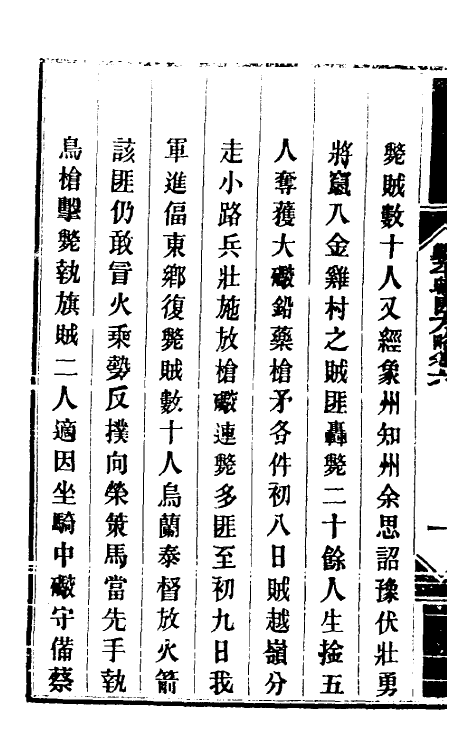 斃賊數十人又經象州知州余思詔豫伏壯勇
將竄入金雞村之賊匪轟斃二十餘人生擒五
人奪獲大礮鉛藥槍矛各件初八日賊越嶺分
走小路兵壯施放槍礮連斃多匪至初九日我
軍進偪東鄉復斃賊數十人烏蘭泰督放火箭
該匪仍敢冒火乘勢反撲向榮策馬當先手執
鳥槍擊斃執旗賊二人適因坐騎中礮守備蔡